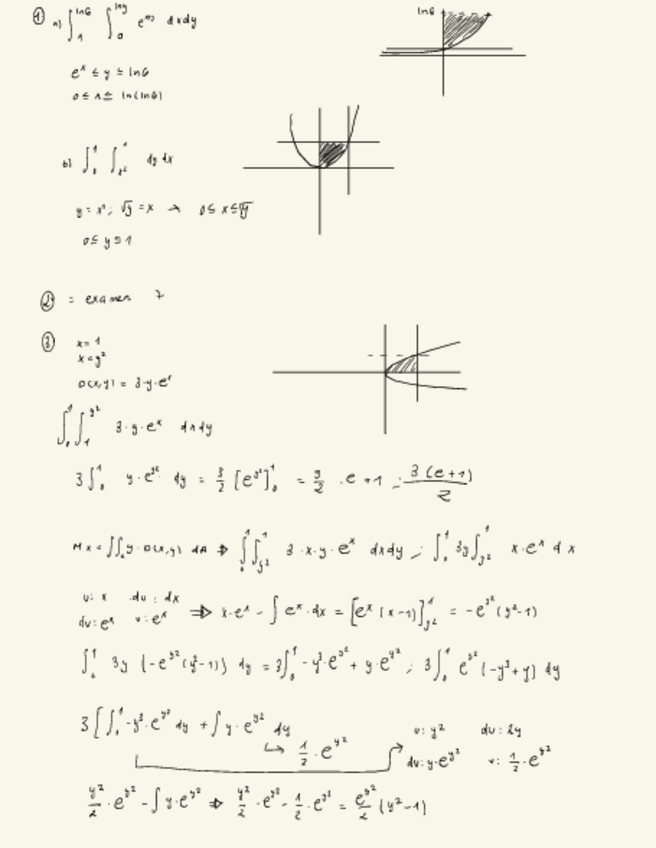 ① a) ∫₁^{ln6} ∫₀^{lny} e^{x} dxdy
ln6
e^x ≤ y ≤ ln6
0 ≤ x ≤ ln(ln6)
b) ∫₀^1 ∫_{x²}^1 dy dx
y = x²; √y = x → 0 ≤ x ≤ √y
0 ≤ y ≤ 1
② = examen 7
③ x = 1
x = y²
D(x,y) = 3·y·e^x
∫₀^1 ∫₁^{y²} 3·y·e^x dxdy
3∫₀^1 y·e^{y²} dy = 3/2 [e^{y²}]₀^1 = 3/2 · e + 1 ; 3(e+1)/2
Mx = ∫∫ y·D(x,y) dA ⇒ ∫₀^1 ∫_{y²}^1 3·x·y·e^x dxdy ; ∫₀^1 3y ∫_{y²}^1 x·e^x dx
u: x du: dx
dv: e^x v: e^x ⇒ x·e^x - ∫ e^x·dx = [e^x (x-1)]_{y²}^1 = -e^{y²}(y²-1)
∫₀^1 3y (-e^{y²}(y²-1)) dy = 3∫₀^1 -y³·e^{y²} + y·e^{y²} ; 3∫₀^1 e^{y²}(-y³+y) dy
3[∫₀^1 -y³·e^{y²} dy + ∫ y·e^{y²} dy
↳ 1/2 · e^{y²}
u: y² du: 2y
dv: y·e^{y²} v: 1/2 · e^{y²}
y²/2 · e^{y²} - ∫ y·e^{y²} ⇒ y²/2 · e^{y²} - 1/2 · e^{y²} = e^{y²}/2 (y²-1)